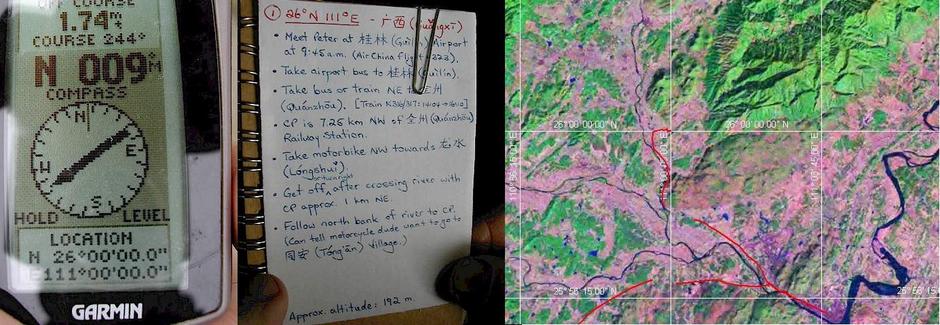 OFF COURSE
1.74
COURSE 244°
N 009
COMPASS
N
E
W
S
HOLD
LEVEL
LOCATION
N 26°00'00.0"
E111°00'00.0"
GARMIN
① 26°N 111°E - 广西 (Guǎngxī)
• Meet Peter at 桂林 (Guilin) Airport
at 9:45 a.m. (Air China flight
• Take airport bus to 桂林 (Guìlín).
• Take bus or train NE to 全州
(Quánzhōu). [Train
• CP is 7.25 km NW of 全州 (Quánzhōu)
Railway Station.
• Take motorbike NW towards
(Lóngshuǐ).
or turn right
• Get off after crossing river with
CP approx. 1 km NE.
• Follow north bank of river to CP.
(Can tell motorcycle dude want to go to
(Tóng'ān) village.)
Approx. altitude: 192 m
26°00'00.00"N
26°00'00.00"N
25°56'15.00"N
25°56'15